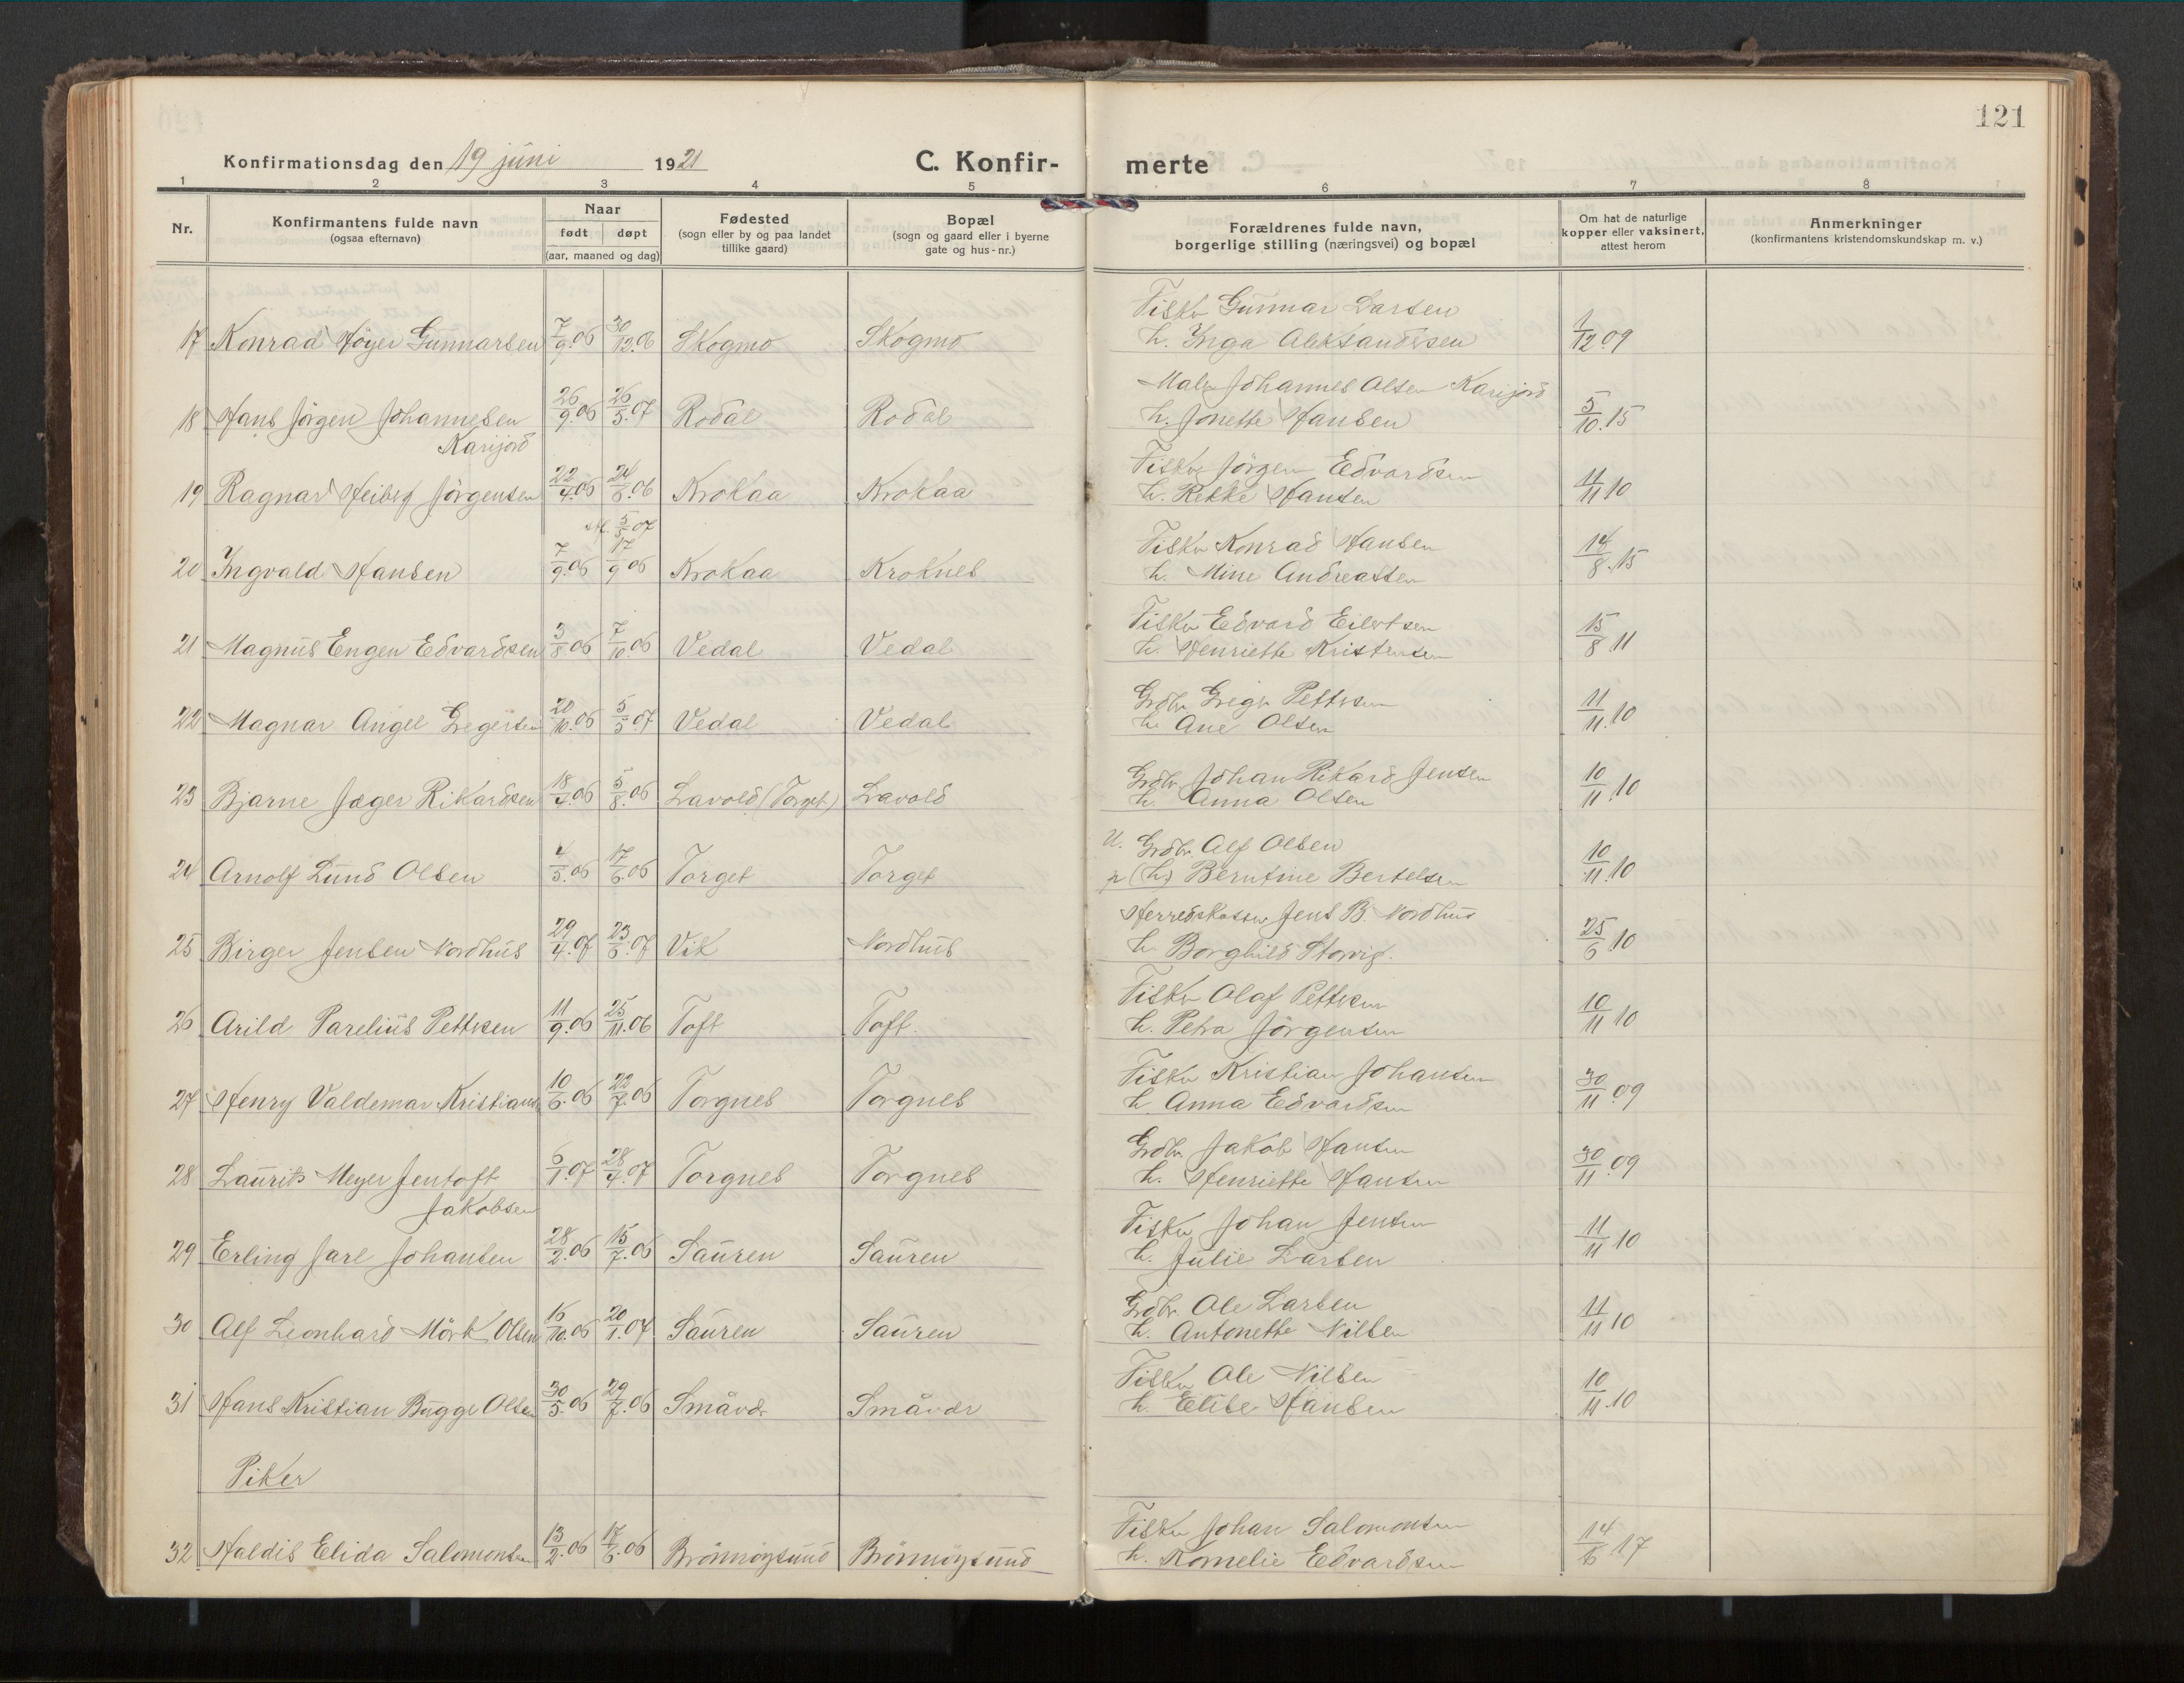 121
Konfirmationsdag den 19 juni 1921
C. Konfir-merte
1 2 3 4 5 6 7 8
Nr.
Konfirmantens fulde navn
(ogsaa efternavn)
Naar
født døpt
(aar, maaned og dag)
Fødested
(sogn eller by og paa landet
tillike gaard)
Bopæl
(sogn og gaard eller i byerne
gate og hus-nr.)
Forældrenes fulde navn,
borgerlige stilling (næringsvei) og bopæl
Om hat de naturlige
kopper eller vaksinert,
attest herom
Anmerkninger
(konfirmantens kristendomskundskap m. v.)
Fisker Gunnar Larsen
17 Konrad Höyer Gunnarsen 7/9.06 30/12.06 Skogmo Skogmo h. Inga Aleksandersen 1/12 09
Maler Johannes Olsen Karijord
18 Hans Jörgen Johannesen 26/9.06 26/5.07 Rodal Rodal h. Jonette Hansen 5/10.15
Karijord
Fisker Jörgen Edvardsen
19 Ragnar Heiberg Jörgensen 22/4.06 24/6.06 Krokaa Krokaa h. Rekke Hansen 11/11 10
5/5 07
Fisker Konrad Hansen
20 Ingvald Hansen 7/9.06 17/9 06 Krokaa Kroknes h. Mine Andreassen 14/8.15
Fisker Edvard Eilertsen
21 Magnus Engen Edvardsen 3/8.06 7/10.06 Vedal Vedal h. Henriette Kristensen 15/8 11
Grdbr. Greger Pettersen
22 Magnar Angel Gregersen 20/10.06 5/5.07 Vedal Vedal h. Ane Olsen 11/11.10
Grdbr. Johan Rikard Jensen
23 Bjarne Jæger Rikardsen 18/4.06 5/8.06 Lavold (Torget) Lavold h. Anna Olsen 10/11.10
U. Grdbr. Alf Olsen
24 Arnolf Lund Olsen 4/5.06 17/6.06 Torget Torget (h.) Berntine Bertelsen 10/11.10
Herredskasser Jens B. Nordhus
25 Birger Jensen Nordhus 29/4.07 23/6.07 Vik Nordhus h. Borghild Storvig. 25/6.10
Fisker Olaf Pettersen
26 Arild Parelius Pettersen 11/9.06 25/11.06 Toft Toft. h. Petra Jörgensen 10/11 10
Fisker Kristian Johansen
27 Henry Valdemar Kristians 10/6.06 22/7.06 Torgnes Torgnes h. Anna Edvardsen 30/11.09
Grdbr. Jakob Hansen
28 Laurits Meyer Jentoft 6/1.07 28/4.07 Torgnes Torgnes h. Henriette Hansen 30/11.09
Jakobsen
Fisker Johan Jensen
29 Erling Jarl Johansen 28/2.06 15/7.06 Sauren Sauren h. Julie Larsen 11/11 10
Grdbr. Ole Larsen
30 Alf Leonhard Mörk Olsen 16/10.06 20/1.07 Sauren Sauren h. Antonette Nilsen 11/11 10
Fisker Ole Nilsen
31 Hans Kristian Bugge Olsen 30/5.06 29/7.06 Småvær Småvær h. Elise Hansen 10/11.10
Piker
Fisker Johan Salomonsen
32 Haldis Elida Salomonsen 13/2.06 17/6.06 Brönnöysund Brönnöysund h. Kornelie Edvardsen 14/6.17